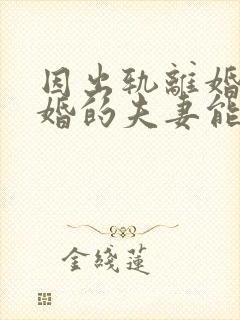 因出轨離婚
婚的夫妻能
金綫蓮